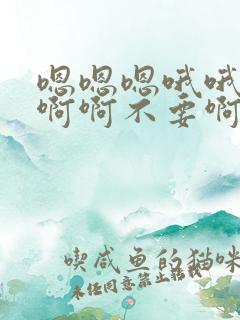 嗯嗯嗯哦哦
啊啊不要啊
喫咸鱼的猫咪
未经同意禁止转载